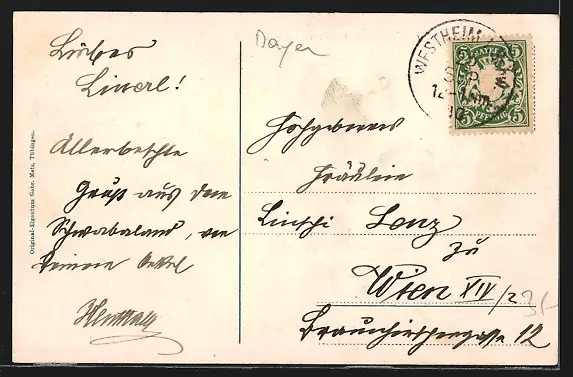 Bayer
Liebes
Linerl!
Allerbeste
Gruß aus dem
Schwabaland, von
Deinem Onkel
Original-Eigentum Gebr. Metz, Tübingen.
WESTHEIM
12-1 Nm
BAYERN
5 5
5 5
PFENNIG
Hochgeboren
Fräulein
Lintschi Lenz
zu
Wien XIV/2
Braunhirschengasse 12
3/-